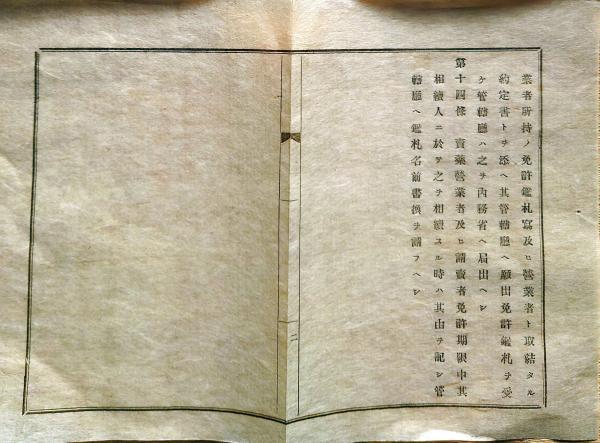 業者所持ノ免許鑑札寫及ヒ營業者ト取結タル
約定書トヲ添ヘ其管轄廳ヘ願出免許鑑札ヲ受
ケ管轄廳ハ之ヲ内務省ヘ屆出ヘシ
第十四條 賣藥營業者及ヒ請賣者免許期限中其
相續人ニ於テ之ヲ相續スル時ハ其由ヲ記シ管
轄廳ヘ鑑札名前書換ヲ請フヘシ
二